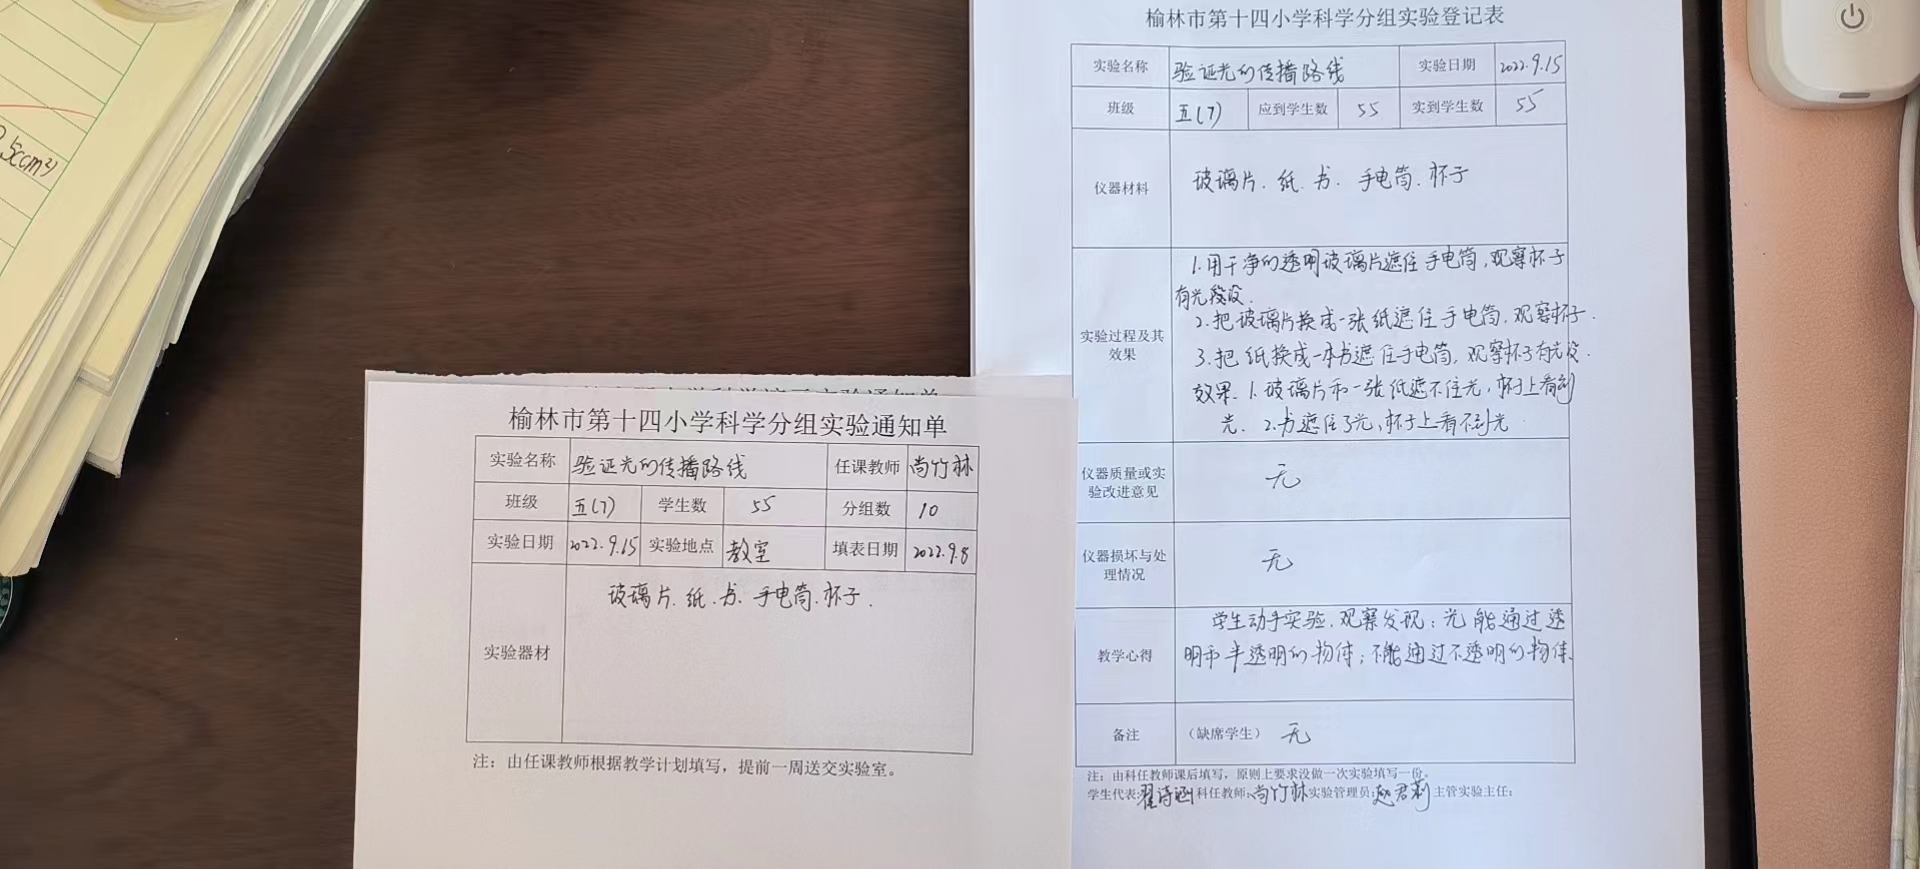 5ccm²)
榆林市第十四小学科学分组实验通知单
实验名称 验证光的传播路线 任课教师 尚竹林
班级 五(7) 学生数 55 分组数 10
实验日期 2022.9.15 实验地点 教室 填表日期 2022.9.8
实验器材 玻璃片.纸.书.手电筒.杯子.
注：由任课教师根据教学计划填写，提前一周送交实验室。
榆林市第十四小学科学分组实验登记表
实验名称 验证光的传播路线 实验日期 2022.9.15
班级 五(7) 应到学生数 55 实到学生数 55
仪器材料 玻璃片.纸.书.手电筒.杯子
实验过程及其
效果
1.用干净的透明玻璃片遮住手电筒,观察杯子
有光没.
2.把玻璃片换成一张纸遮住手电筒.观察杯子.
3.把纸换成一本书遮住手电筒,观察杯子有光没.
效果.1.玻璃片和一张纸遮不住光,杯子上看到
光.2.书遮住了光,杯子上看不到光
仪器质量或实
验改进意见
无
仪器损坏与处
理情况
无
教学心得
学生动手实验.观察发现:光能通过透
明和半透明的物体;不能通过不透明的物体.
备注 （缺席学生） 无
注：由科任教师课后填写，原则上要求没做一次实验填写一份。
学生代表: 科任教师:尚竹林 实验管理员:赵君莉 主管实验主任: